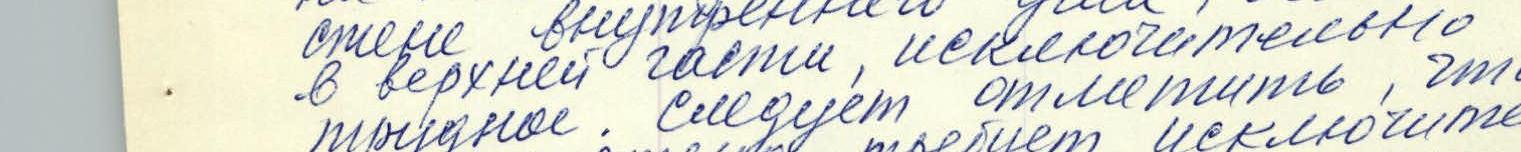 стене внутреннего угла,
в верхней части, исключительно
трудное. Следует отметить, что
требует исключите